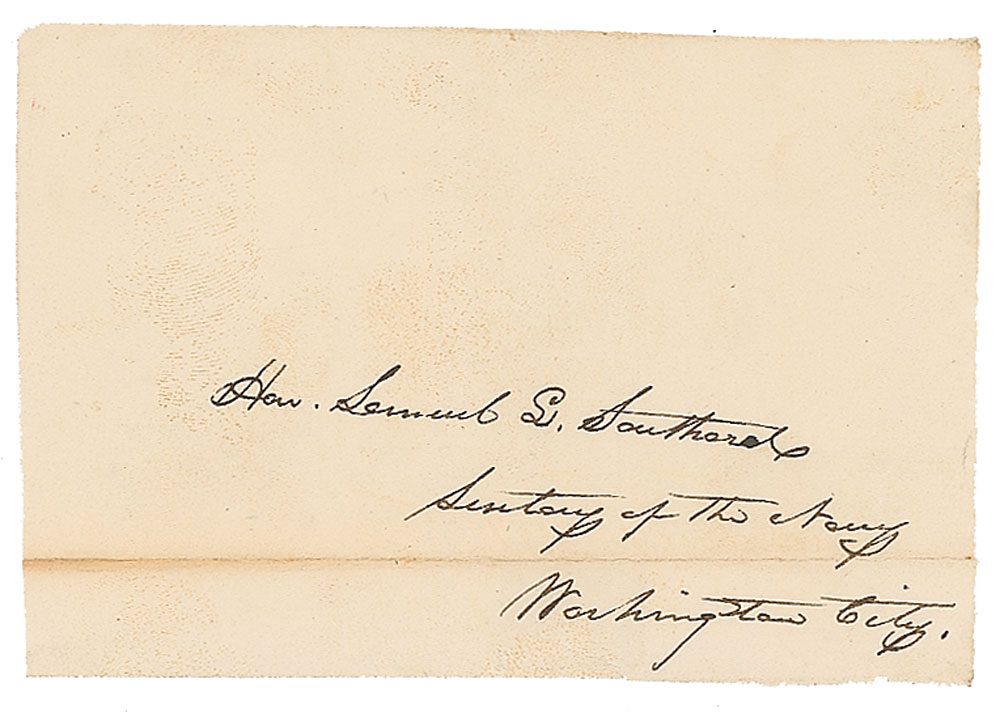 Hon. Samuel L. Southard
Secretary of the Navy
Washington City.